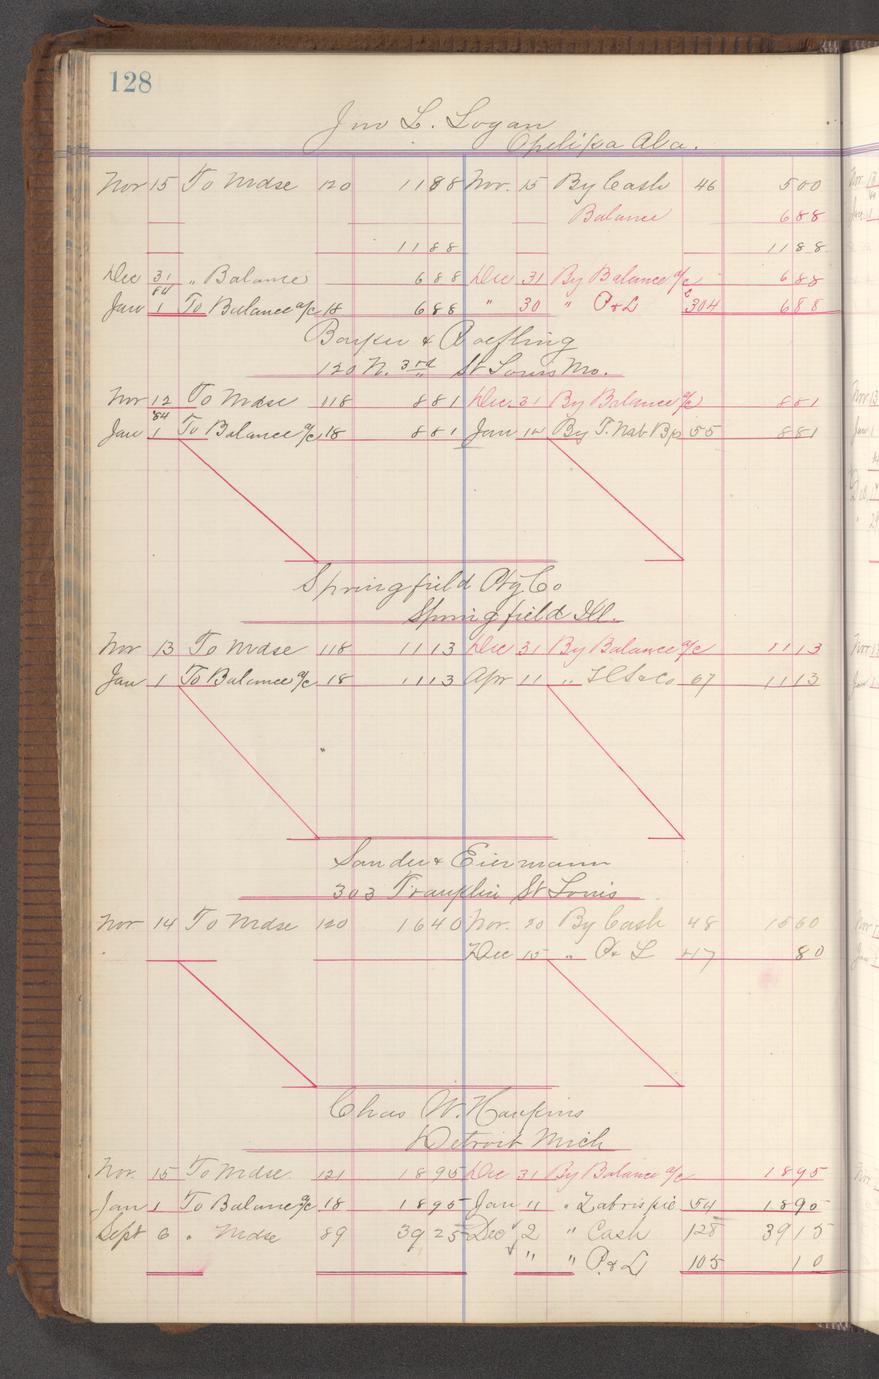 128
Jno L. Logan
Opelika Ala.
Nov 15 To Mdse 120 1188 Nov. 15 By Cash 46 500
Balance 688
1188 1188
Dec 31 " Balance 688 Dec 31 By Balance a/c 688
84
Jan 1 To Balance a/c 18 688 " 30 " P & L 304 688
& Roefling
120 N. 3rd St Louis Mo.
Nov 12 To Mdse 118 881 Dec. 31 By Balance a/c 881
'84
Jan 1 To Balance a/c 18 881 Jan 12 By T. Nat Bk 55 881
Springfield Co
Springfield Ill.
Nov 13 To Mdse 118 1113 Dec 31 By Balance a/c 1113
Jan 1 To Balance a/c 18 1113 Apr 11 " & Co 67 1113
Sander & Eiermann
303 Franklin St Louis
Nov 14 To Mdse 120 1640 Nov. 20 By Cash 48 1560
Dec 15 " P & L 80
Chas W. Hawkins
Detroit Mich
Nov. 15 To Mdse. 121 1895 Dec 31 By Balance a/c 1895
Jan 1 To Balance a/c 18 1895 Jan 11 " Zabriskie 54 1895
Sept 6 " Mdse 89 3925 Dec 2 " Cash 128 3915
" " P. & L 105 10